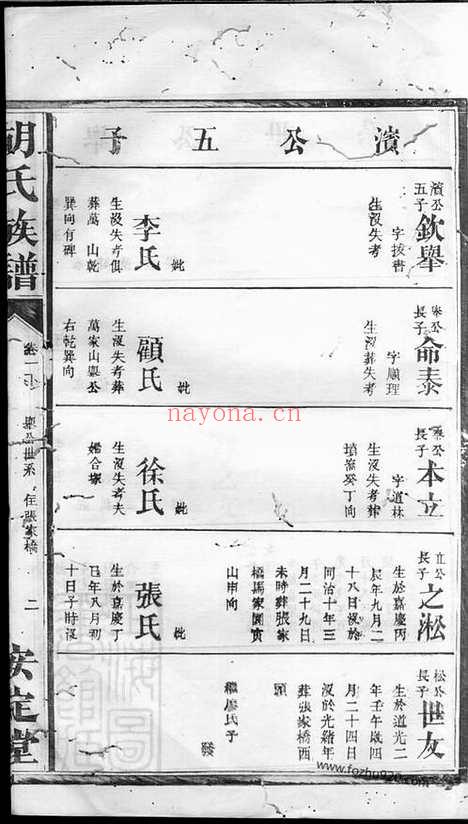 濱公五子
濱公
五子
欽舉
字拔書
生沒失考
妣
李氏
生沒失考俱
葬萬山乾
巽向有碑
舉公
長子
命泰
字順理
生沒葬失考
妣
顧氏
生沒失考葬
萬家山舉公
右乾巽向
泰公
長子
本立
字道林
生沒失考葬
癸丁向
妣
徐氏
生沒失考夫
婦合塚
立公
長子
之淞
生於嘉慶丙
辰年九月二
十八日沒於
同治十年三
月二十九日
未時葬張家
橋馬家園寅
山申向
妣
張氏
生於嘉慶丁
巳年八月初
十日子時沒
松公
長子
世友
生於道光二
年壬午歲四
月二十四日
沒於光緒年
葬張家橋西
頭
繼廖氏子
發
胡氏族譜
卷一
舉公世系
住張家橋
二
安定堂
nayona.cn
www.fozhu920.com